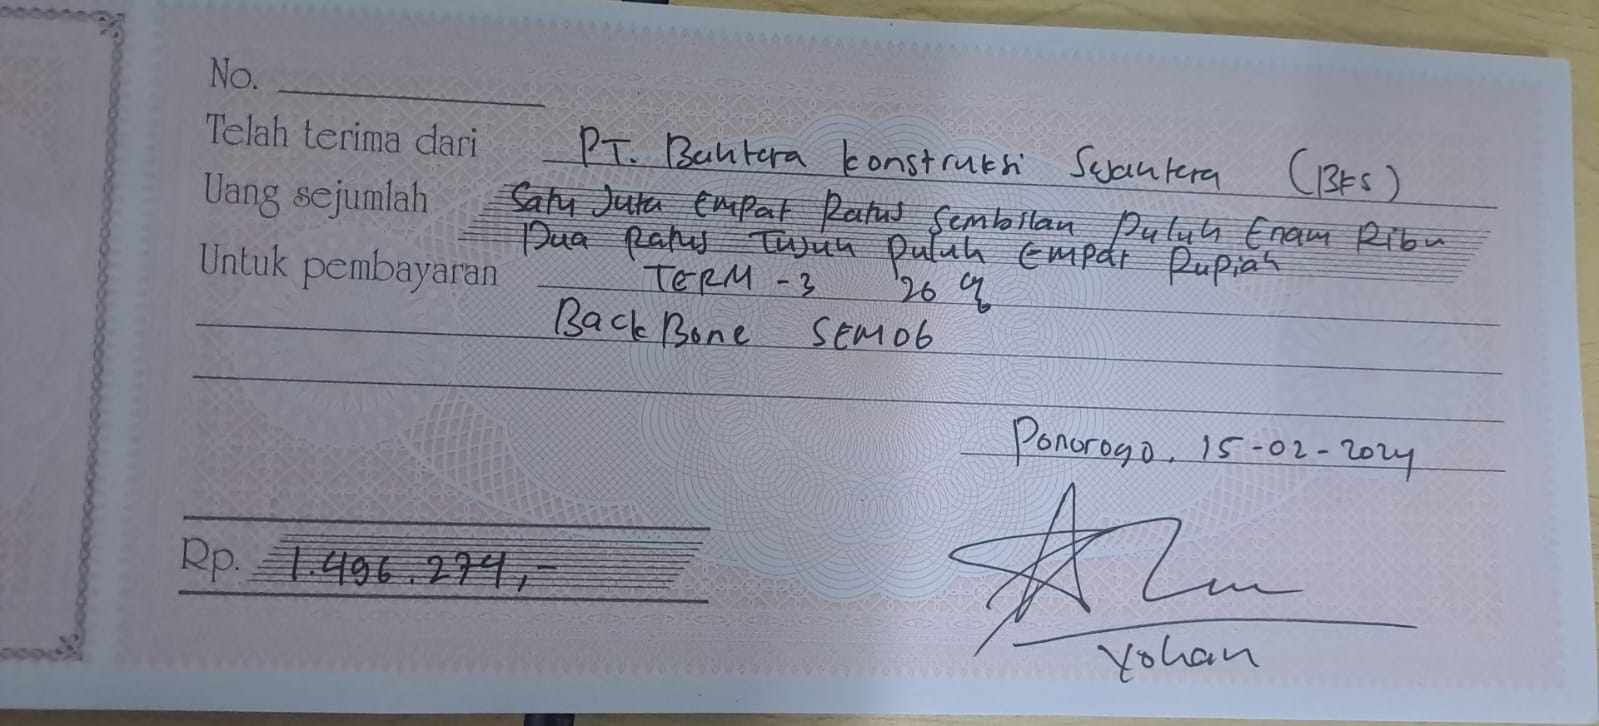 No.
Telah terima dari PT. Bahtera Konstruksi Sejahtera (BKS)
Uang sejumlah Satu Juta Empat Ratus Sembilan Puluh Enam Ribu
Dua Ratus Tujuh Puluh Empat Rupiah
Untuk pembayaran TERM - 3 26
BackBone SEM06
Ponorogo, 15-02-2024
Rp. 1.496.274,-
Yohan